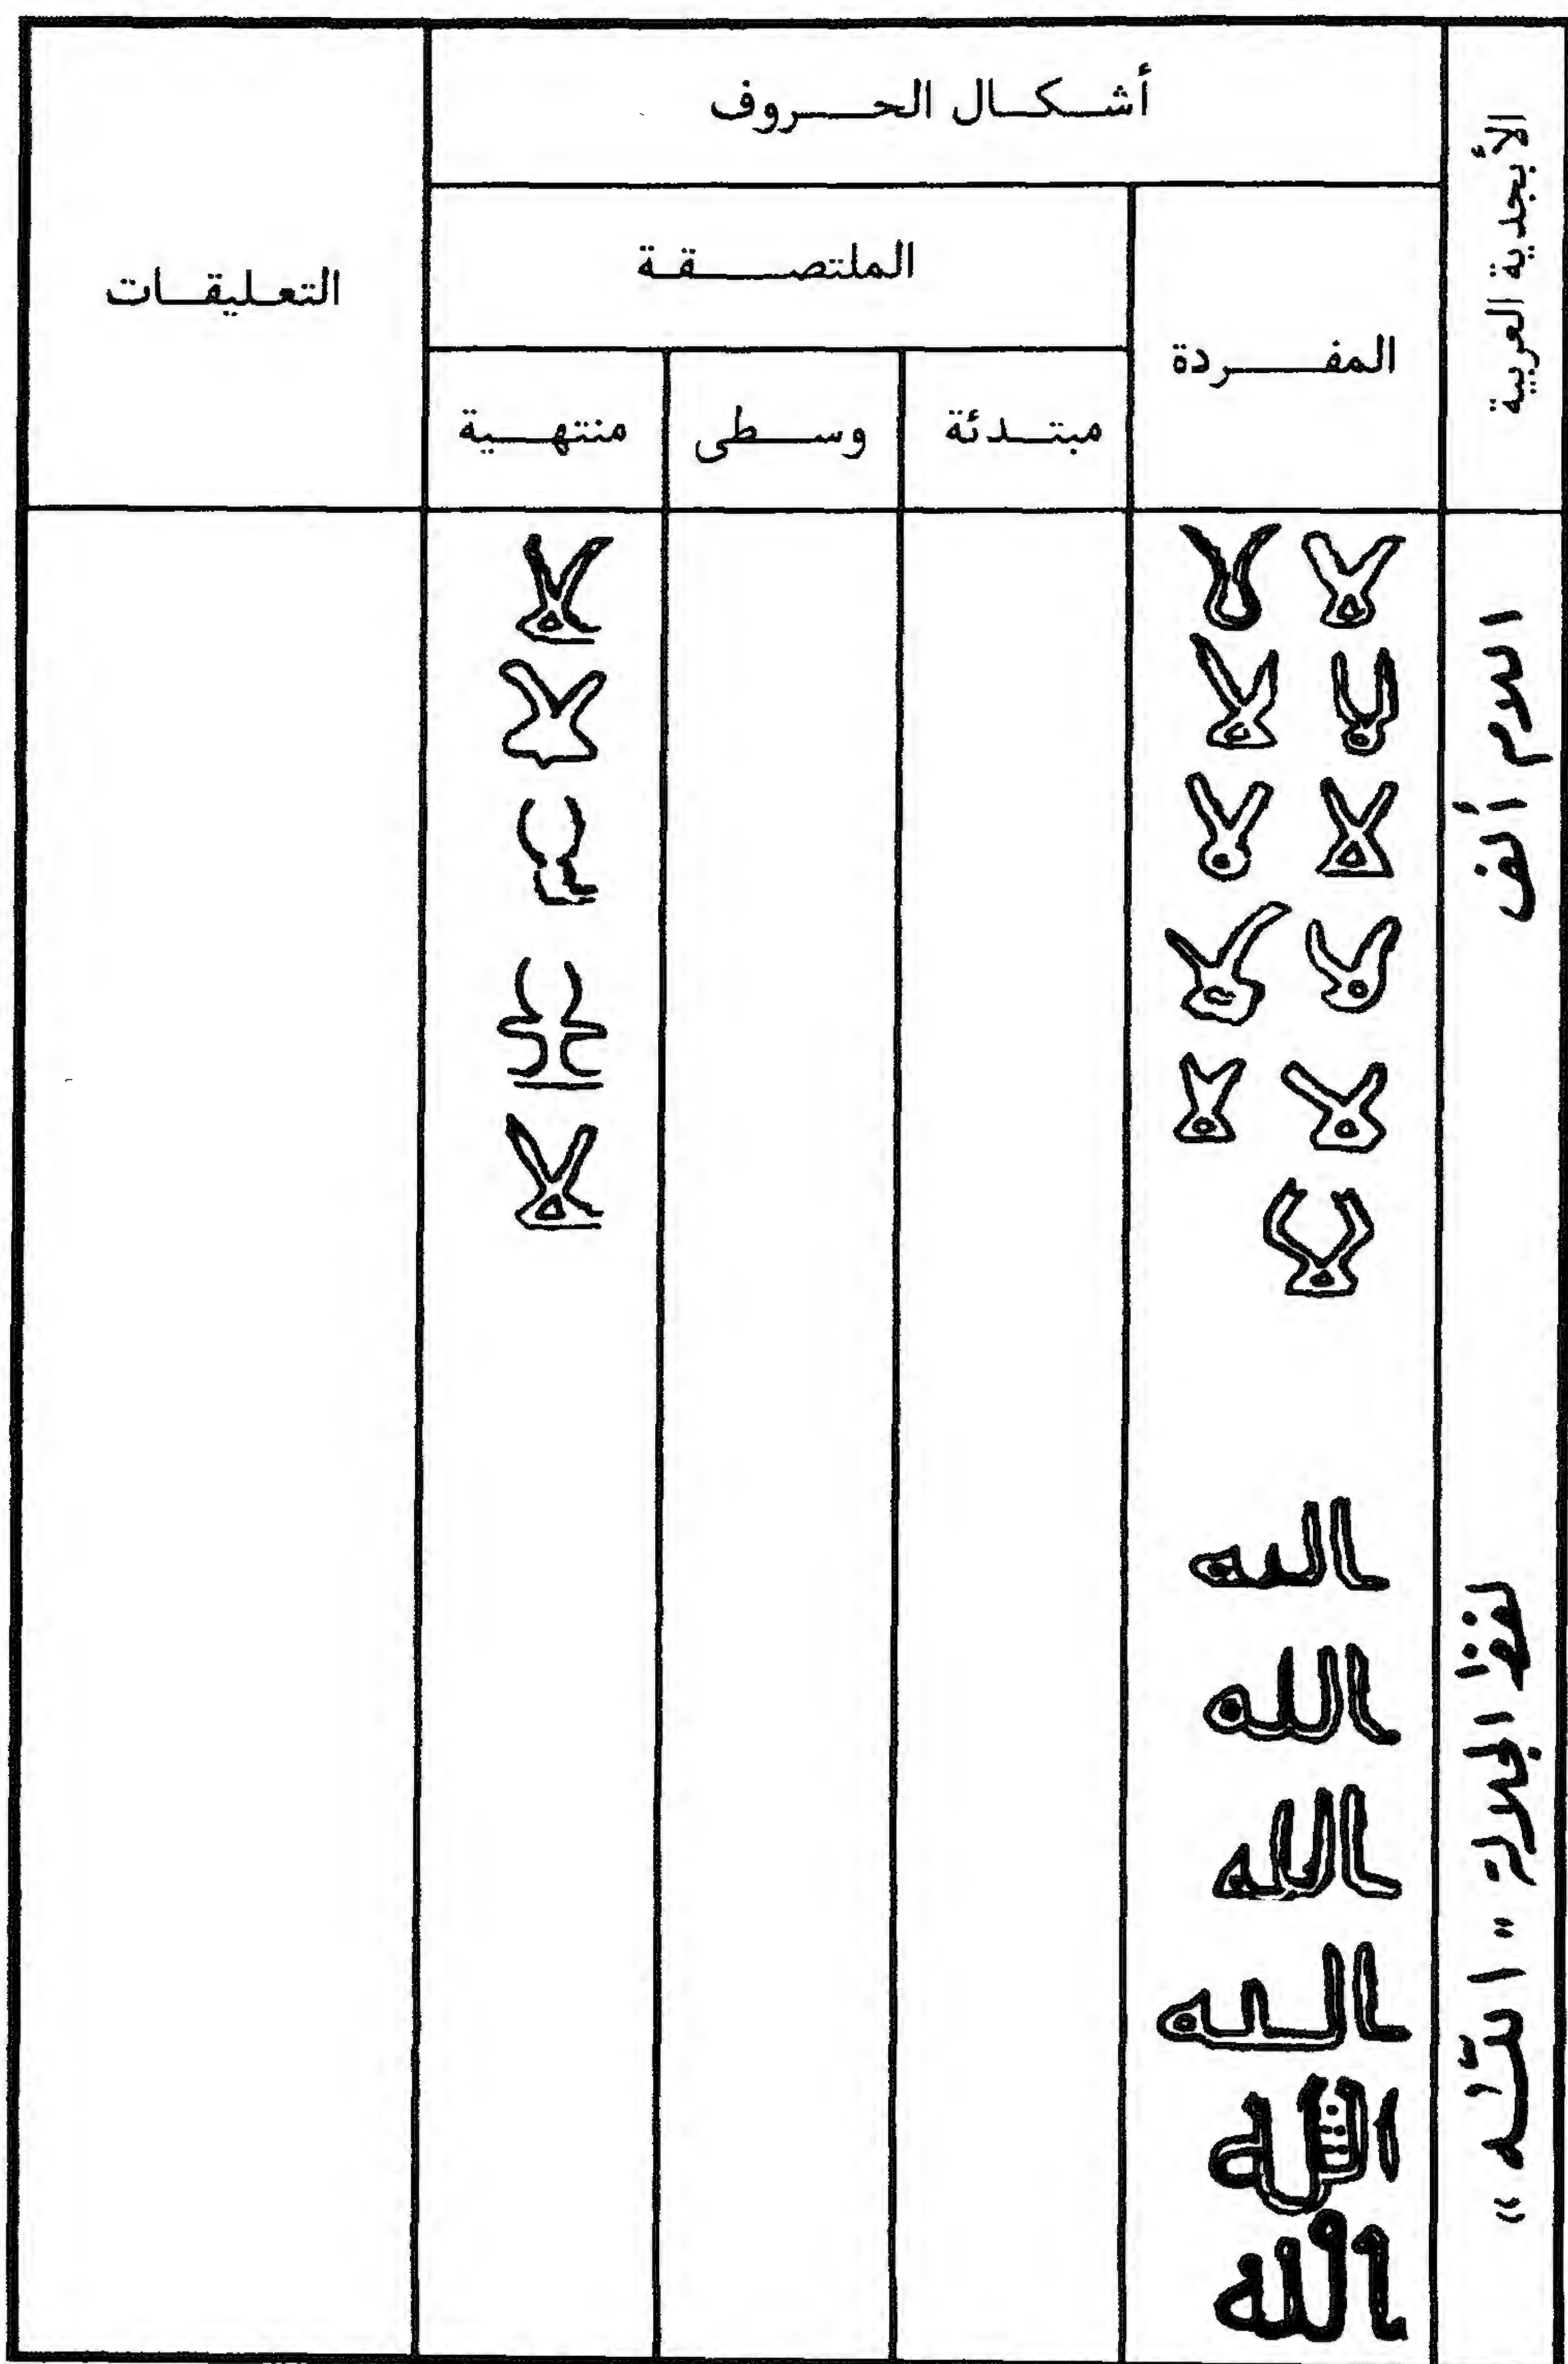 الأبجدية العربية
أشكال الحروف
التعليقات
المفردة
الملتصقة
مبتدئة
وسطى
منتهية
اللام ألف
لا لا
لا لا
لا لا
لا لا
لا لا
لا
لا
لا
لا
لا
لا
لفظ الجلالة " اللّٰه "
الله
الله
الله
الله
الله
الله